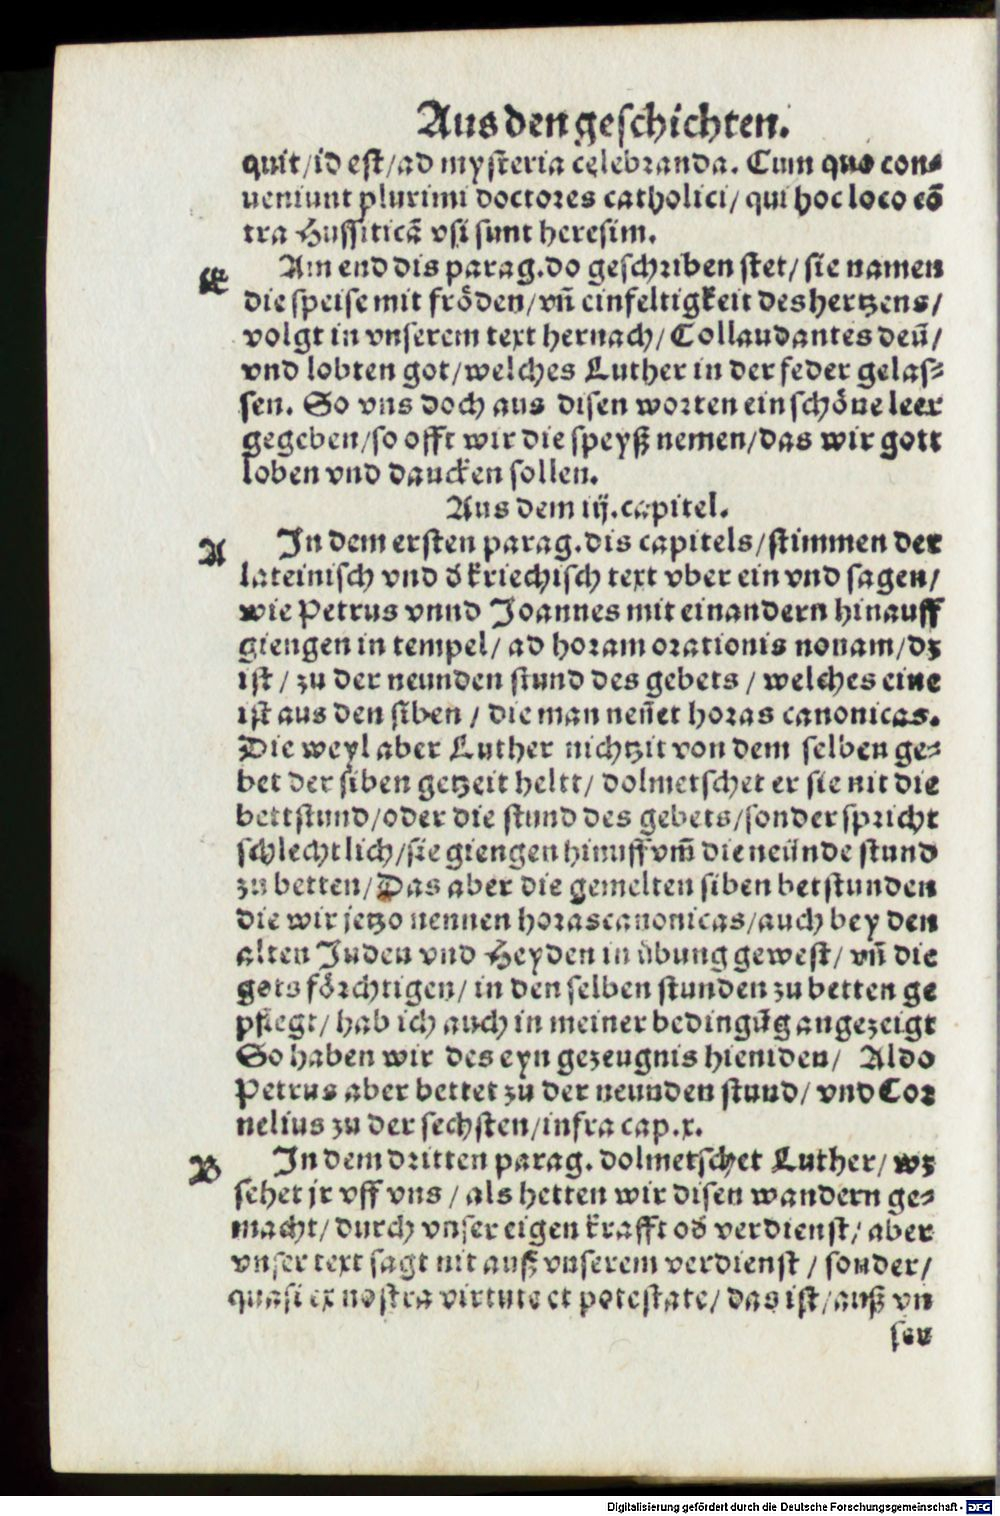 Aus den geschichten.
quit/id est/ad mysteria cęlebranda. Cum quo con⸗
ueniunt plurimi doctores catholici/ qui hoc loco cō
tra Hussiticā vsi sunt heresim.
E Am end dis parag. do geschriben stet/ sie namen
die speise mit fröden/ vñ einfeltigkeit des hertzens/
volgt in vnserem text hernach/ Collaudantes deū/
vnd lobten got/ welches Luther in der feder gelas⸗
sen. So vns doch aus disen worten ein schöne leer
gegeben/ so offt wir die speyß nemen/ das wir gott
loben vnd dancken sollen.
Aus dem iij. capitel.
A In dem ersten parag. dis capitels/ stimmen der
lateinisch vnd d̄ kriechisch text vber ein vnd sagen/
wie Petrus vnnd Joannes mit einandern hinauff
giengen in tempel/ ad horam orationis nonam/ dz
ist / zu der neunden stund des gebets / welches eine
ist aus den siben / die man neñet horas canonicas.
Die weyl aber Luther nichtzit von dem selben ge⸗
bet der siben getzeit heltt/ dolmetschet er sie nit die
bettstund/ oder die stund des gebets/ sonder spricht
schlechtlich/ sie giengen hinuff vm̄ die neünde stund
zu betten/ Das aber die gemelten siben betstunden
die wir jetzo nennen horas canonicas/ auch bey den
alten Juden vnd Heyden in übung gewest/ vñ die
gots förchtigen/ in den selben stunden zu betten ge
pflegt/ hab ich auch in meiner bedingūg angezeigt
So haben wir des eyn gezeugnis hieniden/ Aldo
Petrus aber bettet zu der neunden stund/ vnd Cor
nelius zu der sechsten/ infra cap. x.
B In dem dritten parag. dolmetschet Luther/ wz
sehet jr vff vns / als hetten wir disen wandern ge⸗
macht/ durch vnser eigen krafft od̄ verdienst/ aber
vnser text sagt nit auß vnserem verdienst / sonder/
quasi ex nostra virtute et potestate/ das ist/ auß vn
sen
Digitalisierung gefördert durch die Deutsche Forschungsgemeinschaft - DFG